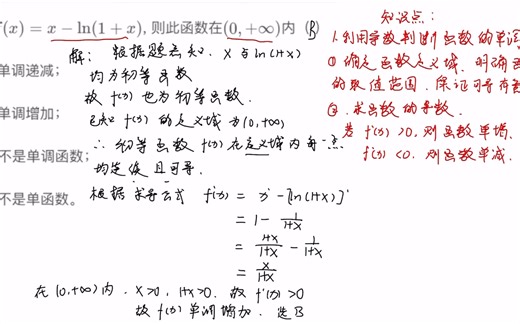 f(x) = x − ln(1 + x), 则此函数在(0, +∞)内 (B)
单调递减；
单调增加；
不是单调函数；
不是单函数。
解： 根据题意知，x 与 ln(1+x)
均为初等函数
故 f(x) 也为初等函数.
已知 f(x) 的定义域为 (0,+∞)
∴ 初等函数 f(x) 在定义域内每一点
均连续且可导.
根据求导公式 f'(x) = x' − [ln(1+x)]'
= 1 − 1/(1+x)
= (1+x)/(1+x) − 1/(1+x)
= x/(1+x)
在 (0,+∞) 内，x>0，1+x>0，故 f'(x) >0
故 f(x) 单调增加，选B
知识点：
1.利用导数判断函数的单调
① 确定函数定义域，明确
的取值范围，保证可导
②.求函数的导数.
若 f'(x) >0，则函数单增.
f'(x) <0，则函数单减.